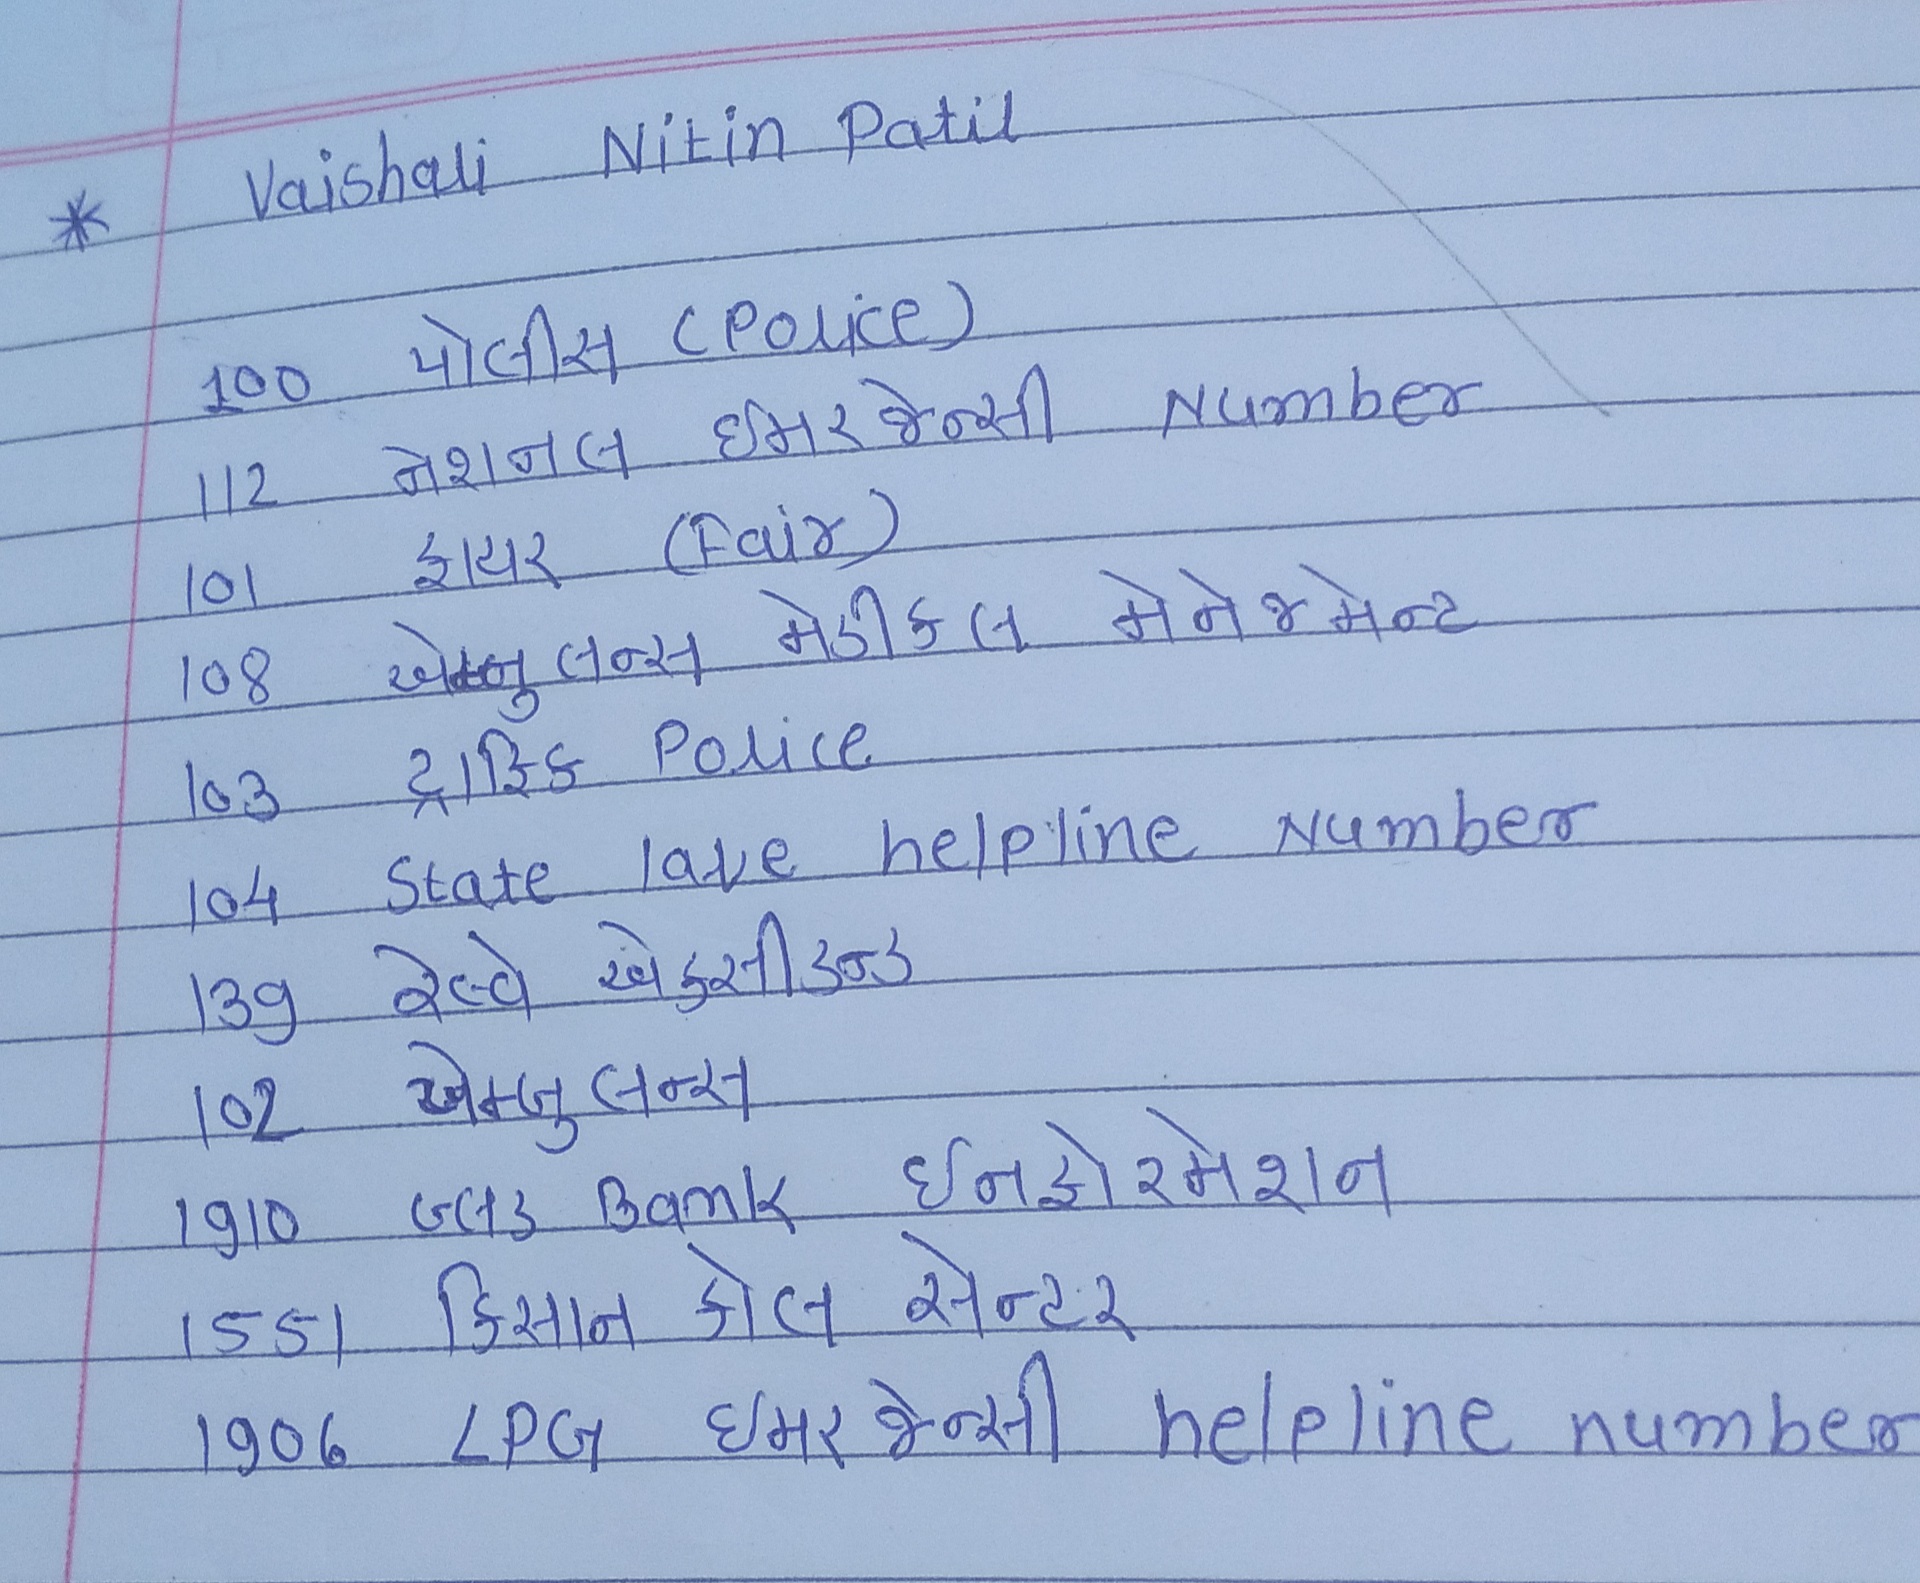 * Vaishali Nitin Patil
100 પોલીસ (Police)
112 નેશનલ ઈમરજેન્સી Number
101 ફાયર (Fair)
108 એમ્બુલન્સ મેડીકલ મેનેજમેન્ટ
103 ટ્રાફિક Police
104 State lave helpline Number
139 રેલ્વે એકસીડન્ડ
102 એમ્બુલન્સ
1910 બ્લડ Bank ઈનફોરમેશન
1551 કિસાન કોલ સેન્ટર
1906 LPG ઈમરજેન્સી helpline number